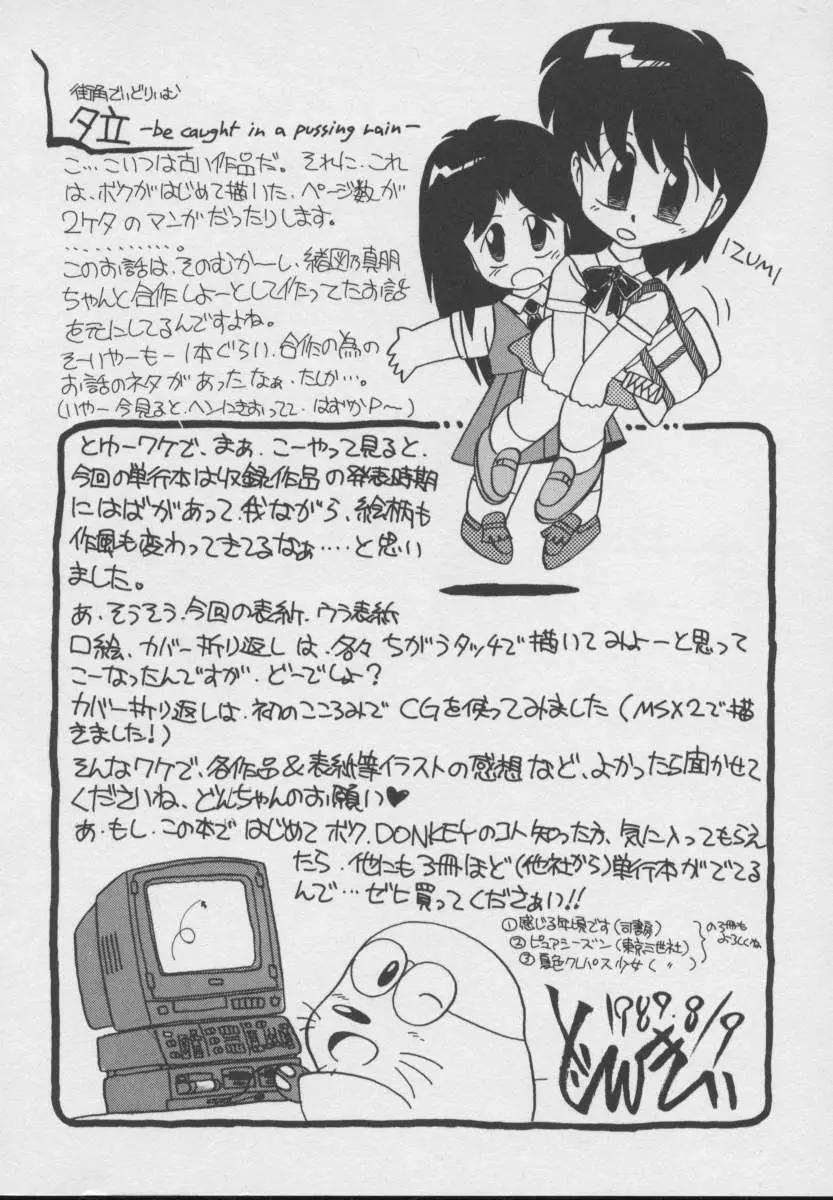 街角でいどりいむ
夕立 -be caught in a pussing rain-
こ…こいつは古い作品だ。それに、これ
は、ボクがはじめて描いた、ページ数が
2ケタのマンガだったりします。
…………。
このお話は、そのむかーし、緒図乃真朋
ちゃんと合作しよーとして作ってたお話
を元にしてるんですよね。
そーいやーもー1本ぐらい、合作の為の
お話のネタがあったなぁ、たしか…。
(いやー今見ると、ヘンにきおってて、はずかP〜)
IZUMI
とゆーワケで、まぁ、こーやって見ると、
今回の単行本は収録作品の発表時期
にはばがあって、我ながら、絵柄も
作風も変わってきてるなぁ……と思い
ました。
あ、そうそう、今回の表紙、ウラ表紙
口絵、カバー折り返しは、各々ちがうタッチで描いてみよーと思って
こーなったんですが、どーでしょ?
カバー折り返しは、初のこころみでCGを使ってみました(MSX2で描
きました!)
そんなワケで、各作品&表紙等イラストの感想など、よかったら聞かせて
くださいね、どんちゃんのお願い♥
あ、もし、この本ではじめてボク、DONKEYのコト知った方、気に入ってもらえ
たら、他にも3冊ほど(他社から)単行本がでてる
んで…ゼヒ買ってくださぁい!!
①感じる年頃です(司書房)
②ピュアシーズン(東京三世社)
③夏色クレパス少女(〃)
の3冊もよろしくね
1989.8/9
どんきい